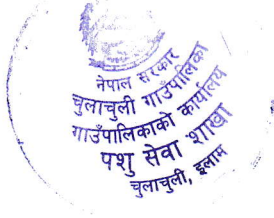 नेपाल सरकार
चुलाचुली गाउँपालिका
गाउँपालिकाको कार्यालय
पशु सेवा शाखा
चुलाचुली, इलाम